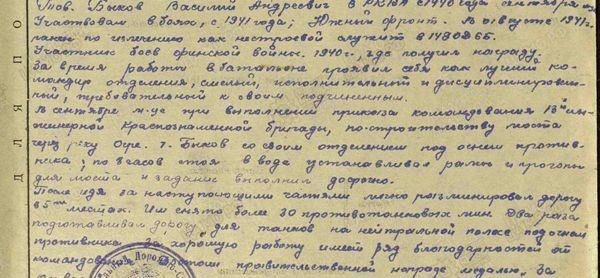 Тов. Быков Василий Андреевич в РККА с 1940 года сентября
Участвовал в боях, с 1941 года; Южный фронт. В августе 1941г.
ранен по излечению как нестроевой служит в 1480ВСБ.
Участник боев финской войны. 1940г., где получил награду.
За время работы в батальоне проявил себя как лучший ко-
мандир отделения, смелый, исполнительный и дисциплинирован-
ный, требовательный к своим подчиненным.
В сентябре м-це при выполнении приказа командования 13й ин-
женерной Краснознаменной бригады, по-строительству моста
через реку т. Быков со своим отделением под огнем против-
ника; по часов стоя в воде устанавливал рамы и прогоны
для моста и задание выполнил досрочно.
После идя за наступающими частями лично разминировал дорогу
в 5ти местах. Им снято более 30 противотанковых мин. Два раза
подготавливал дорогу для танков на нейтральной полосе под огнем
противника. За хорошую работу имеет ряд благодарностей от
командования. Достоин правительственной награде медалью „За
ДЛЯ ПО